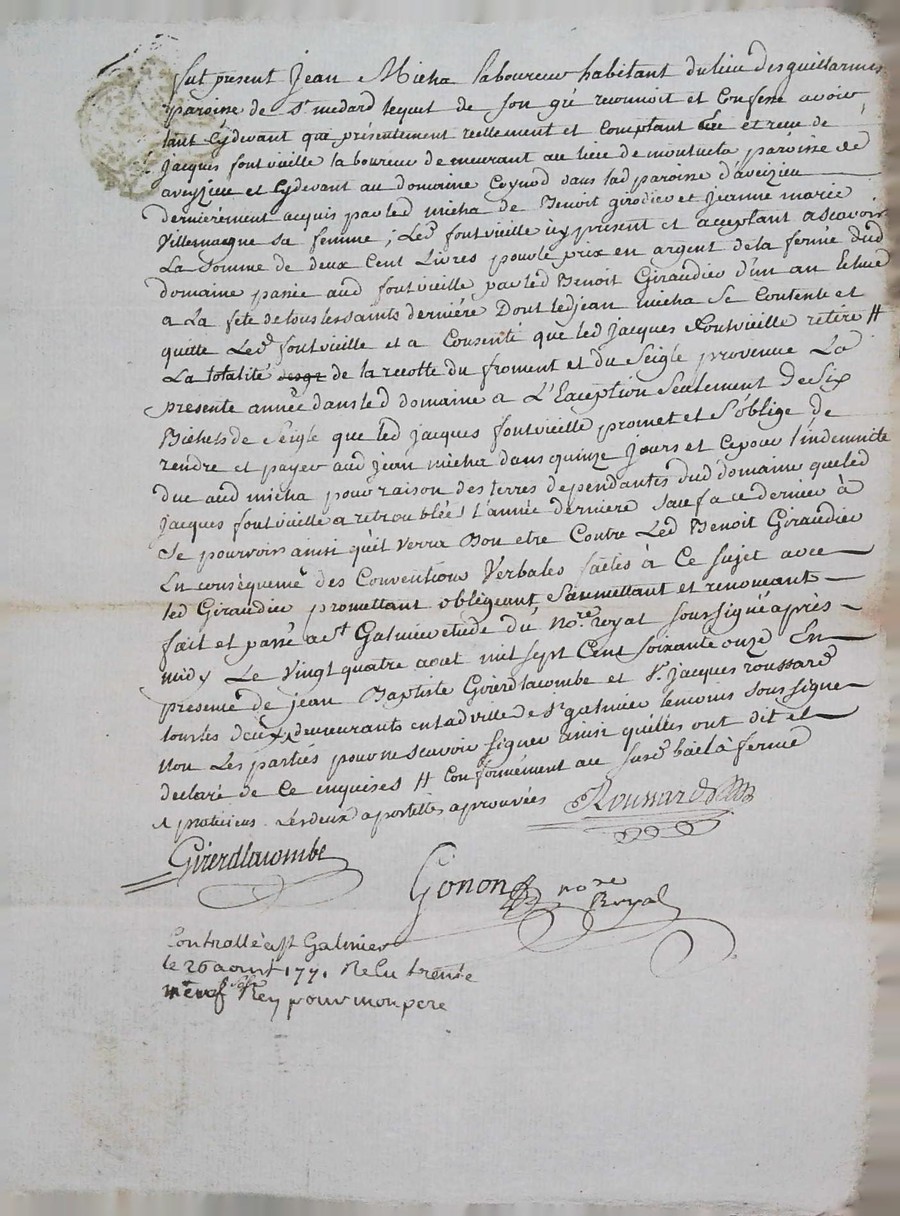 fut present Jean Micha laboureur habitant du lieu des quillarmes
paroisse de St medard lequel de son gré reconnoit et Confesse avoir
tant Cydevant que présentement reellement et comptant Eue et receu de
jacques fontvieille laboureur demeurant au lieu de montucla paroisse de
aveyzieu et Cydevant au domaine Coynod dans lad paroisse d'aveizieu
dernièrement acquis par led micha de Benoit girodier et jeanne marie
Villemagne sa femme ; Led. fontvieille icy present et acceptant ascavoir
La Somme de deux Cent Livres pour le prix en argent de la ferme dud
domaine passée aud fontvieille par led Benoit Giraudier d'un an Echue
a La fete de tous les saints dernière Dont led jean micha Se Contente et
quitte Led. fontvieille et a Consenté que led jacques fontvieille retire #
La totalité de la recolte du froment et du Seigle provenue La
presente année dans led domaine a L'Exception Seulement de Six
Bichets de Seigle que led jacques fontvieille promet et S'oblige de
rendre et payer aud jean micha dans quinze jours et Ce pour l'indemnité
due aud micha pour raison des terres dependantes dud domaine que led
jacques fontvieille a retroublées l'année dernière sauf a ce dernier à
Se pourvoir ainsi qu'il verra Bon etre Contre Led Benoit Giraudier
En conséquence des Conventions Verbales faites à Ce sujet avec
led Giraudier promettant obligeant Soumettant et renonceant
fait et passé a St Galmier etude du nore royal soussigné après
midy Le vingt quatre aout mil sept Cent soixante onze En
presence de jean Baptiste Girerdlacombe et Sr jacques roussard
tous les deux demeurants en lad ville de St galmier temoins soussignes
non Les parties pour ne scavoir signer ainsi qu'elles ont dit et
declaré de Ce enquises # Conformément au susd bail à ferme
praticiens. Les deux apostilles aprouvées Roussard
Girerdlacombe
Gonon nore Royal
Controllé a St Galmier
le 26 aoust 1771 Recu trente
Rey pour mon pere